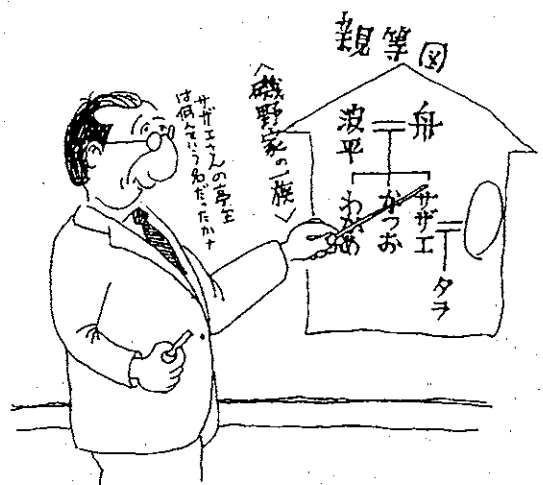 親等図
〈磯野家の一族〉
サザエさんの亭主
は何んていう名だったかナ
舟
波平
サザエ
かつお
わかめ
タラ